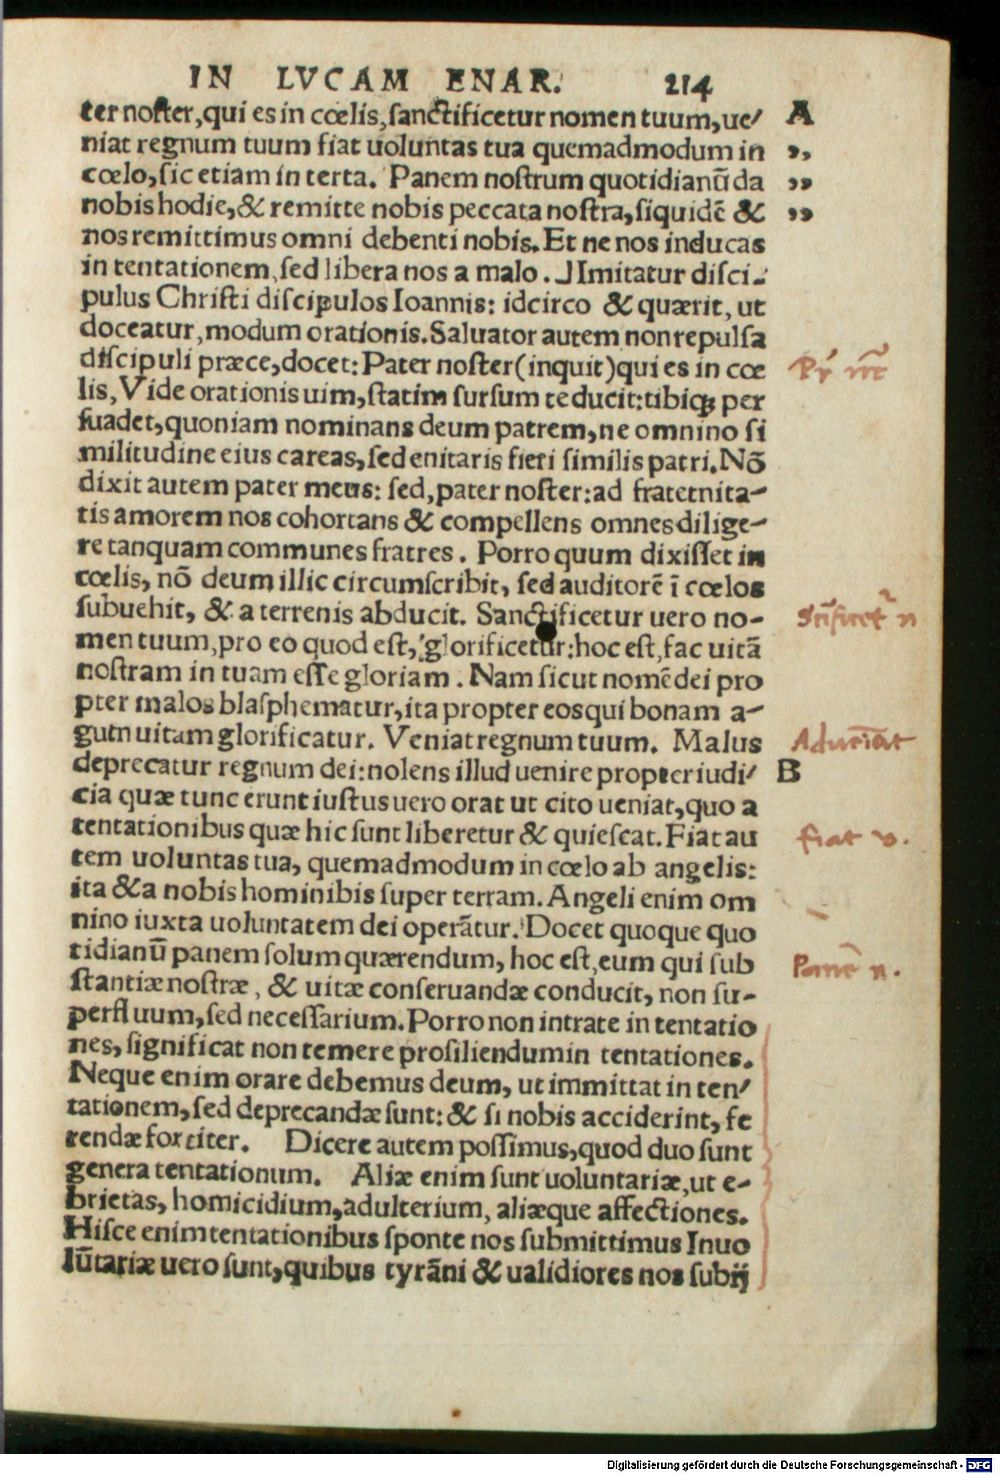 IN LVCAM ENAR. 214
ter noster, qui es in cœlis, sanctificetur nomen tuum, ue/ A
niat regnum tuum fiat uoluntas tua quemadmodum in ,,
cœlo, sic etiam in terta. Panem nostrum quotidianū da ,,
nobis hodie, & remitte nobis peccata nostra, siquidē & ,,
nos remittimus omni debenti nobis. Et ne nos inducas
in tentationem, sed libera nos a malo. ⅃Imitatur disci-
pulus Christi discipulos Ioannis: idcirco & quærit, ut
doceatur, modum orationis. Saluator autem non repulsa
discipuli præce, docet: Pater noster (inquit) qui es in cœ Pr̄ nr̄
lis, Vide orationis uim, statim sursum te ducit: tibiq; per
suadet, quoniam nominans deum patrem, ne omnino si
militudine eius careas, sed enitaris fieri similis patri. Nō
dixit autem pater meus: sed, pater noster: ad fratetnita-
tis amorem nos cohortans & compellens omnes dilige-
re tanquam communes fratres. Porro quum dixisset in
cœlis, nō deum illic circumscribit, sed auditorē ī cœlos
subuehit, & a terrenis abducit. Sanctificetur uero no- Scīficetr n
men tuum, pro eo quod est, glorificetur: hoc est, fac uitā
nostram in tuam esse gloriam. Nam sicut nomē dei pro
pter malos blasphematur, ita propter eos qui bonam a-
gutn uitam glorificatur. Veniat regnum tuum. Malus Aduēiat
deprecatur regnum dei: nolens illud uenire propter iudi/ B
cia quæ tunc erunt iustus uero orat ut cito ueniat, quo a
tentationibus quæ hic sunt liberetur & quiescat. Fiat au fiat v.
tem uoluntas tua, quemadmodum in cœlo ab angelis:
ita & a nobis hominibis super terram. Angeli enim om
nino iuxta uoluntatem dei operātur. Docet quoque quo
tidianū panem solum quærendum, hoc est, eum qui sub Panē n.
stantiæ nostræ, & uitæ conseruandæ conducit, non su-
perfluum, sed necessarium. Porro non intrate in tentatio
nes, significat non temere prosiliendumin tentationes.
Neque enim orare debemus deum, ut immittat in ten/
tationem, sed deprecandæ sunt: & si nobis acciderint, fe
rendæ fortiter. Dicere autem possimus, quod duo sunt
genera tentationum. Aliæ enim sunt uoluntariæ, ut e-
brietas, homicidium, adulterium, aliæque affectiones.
Hisce enim tentationibus sponte nos submittimus Inuo
lūtariæ uero sunt, quibus tyrāni & ualidiores nos subij
Digitalisierung gefördert durch die Deutsche Forschungsgemeinschaft - DFG